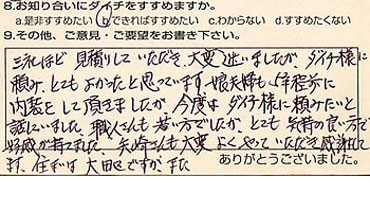 8.お知り合いにダイチをすすめますか。
a.是非すすめたい b.できればすすめたい c.わからない d.すすめたくない
9.その他、ご意見・ご要望をお書き下さい。
三社ほど見積りしていただき、大変迷いましたが ダイチ様に
頼み、とてもよかったと思っています。娘夫婦も 5年程前に
内装をして頂きましたが、今度は ダイチ様に頼みたいと
話していました。職人さんも若い方でしたが、とても気持の良い方で
好感が持てました。矢崎さんも大変よくやっていただき感謝して
ます。住まいは 大田区ですが、また
ありがとうございました。